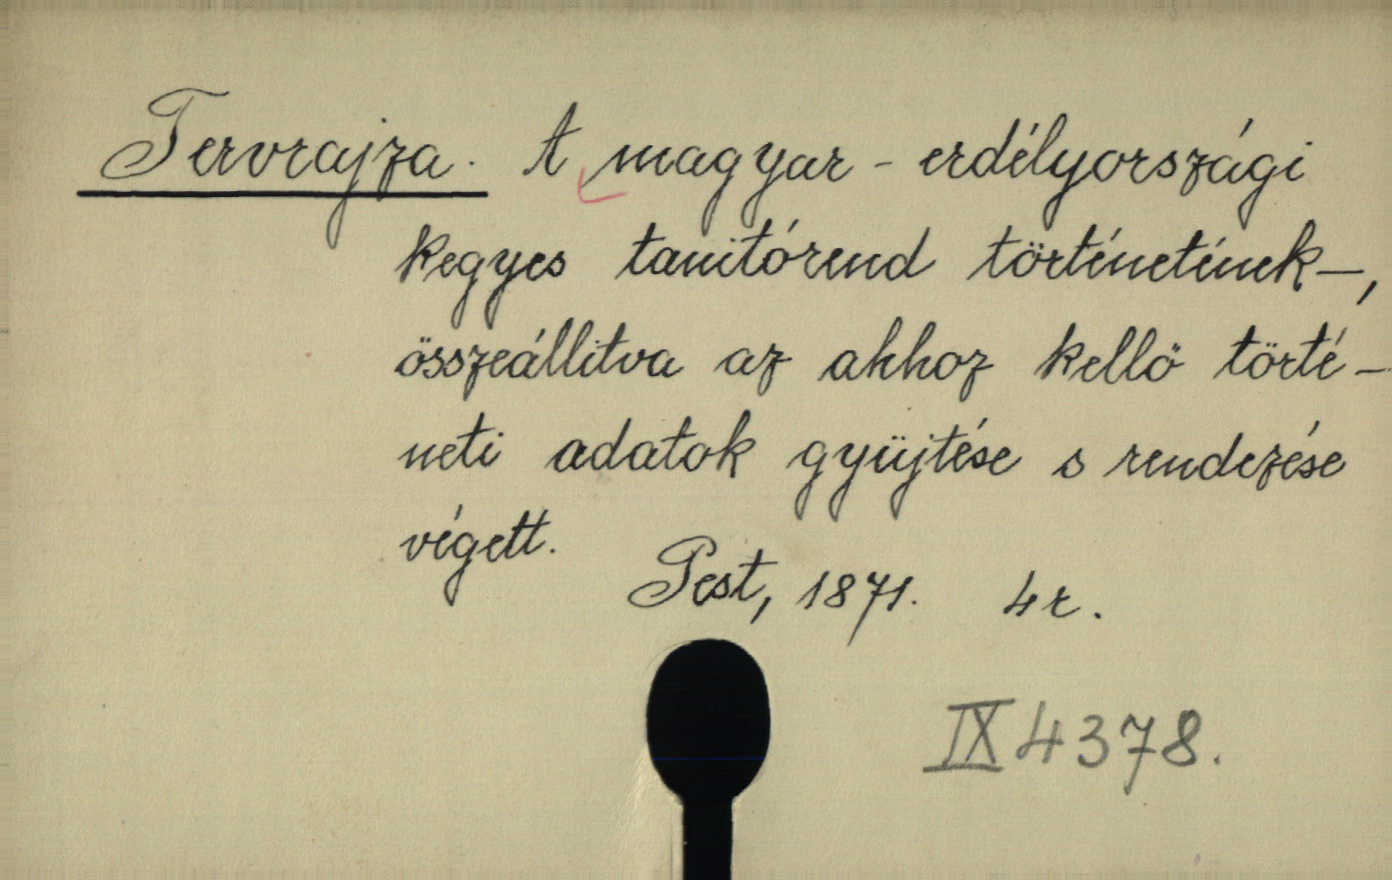 Tervrajza. A magyar - erdélyországi
kegyes tanitórend történetének—,
összeállitva az ahhoz kellő törté-
neti adatok gyüjtése s rendezése
végett.
Pest, 1871. 4r.
IX 4378.